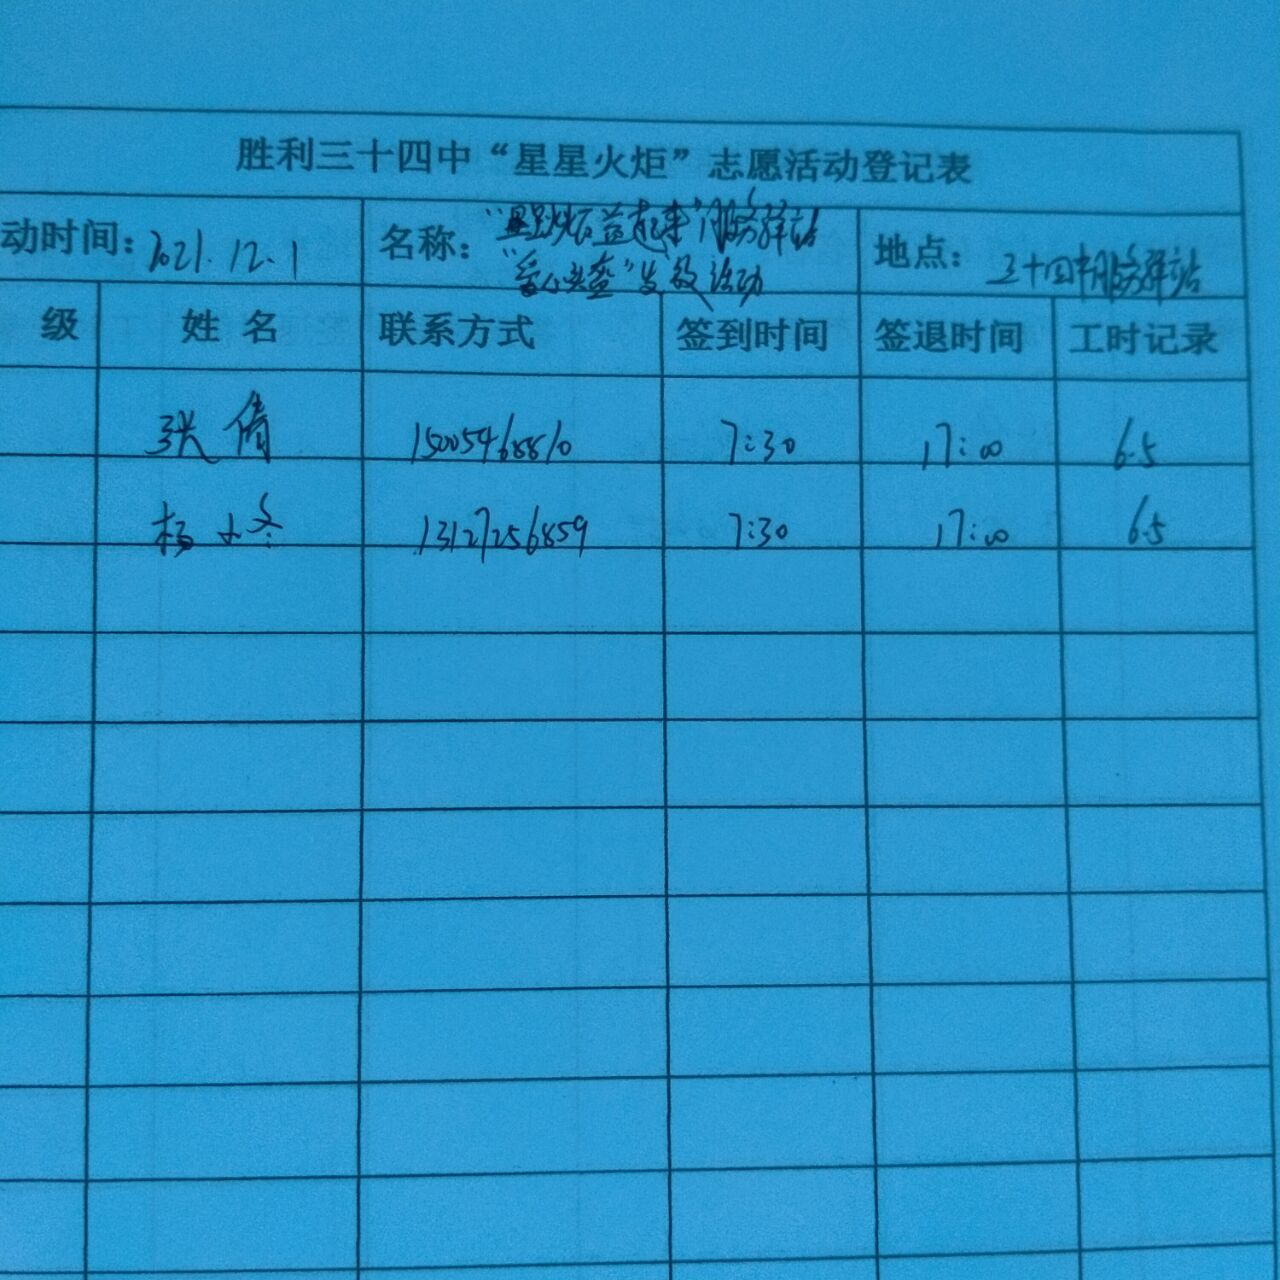 胜利三十四中“星星火炬”志愿活动登记表
动时间：2021.12.1 名称：“星星火炬益起来”服务驿站 地点：三十四中服务驿站
“爱心头盔”发放活动
级 姓名 联系方式 签到时间 签退时间 工时记录
张倩 15005468810 7:30 17:00 6.5
杨小冬 13127256859 7:30 17:00 6.5